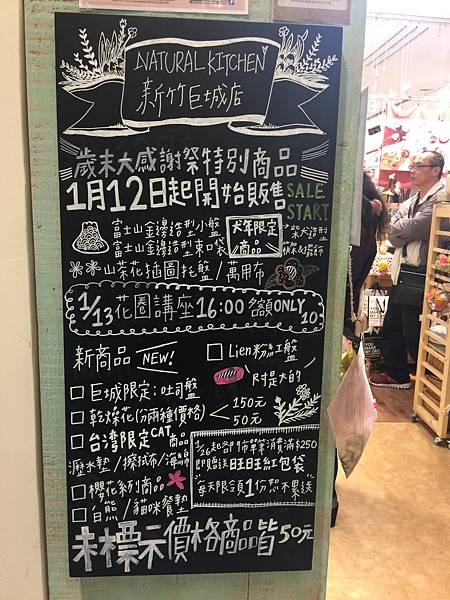 NATURAL KITCHEN
新竹巨城店
歲末大感謝祭特別商品
1月12日起開始販售 SALE START
富士山金邊造型小盤
富士山金邊造型束口袋
犬年限定商品
柴犬造型
筷架&擺飾
山茶花插圖托盤/萬用布
1/13花圈講座16:00 名額ONLY 10
新商品 NEW!
□ Lien粉紅盤
□ 巨城限定:吐司盤
尺寸是大的
□ 乾燥花(分兩種價格) 150元 50元
□ 台湾限定CAT商品
瀝水墊/擦拭布/海綿
□ 櫻花系列商品
□ 白熊/貓咪餐墊
1/26起各門市單筆消費滿$250
即贈送旺旺紅包袋
"每天限領1份恕不累送"
未標示價格商品皆50元